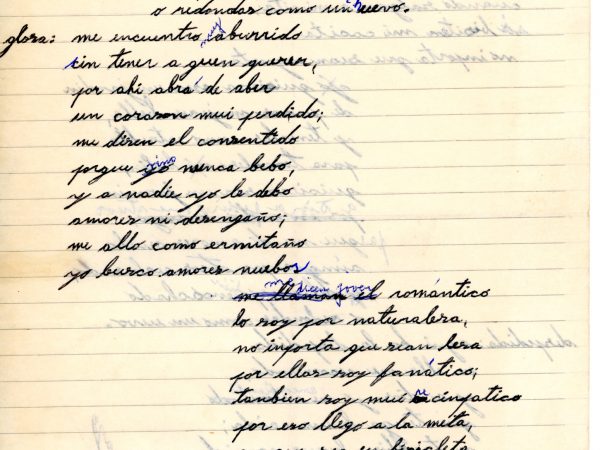 o redondas como un huevo.
glosa: me encuentro muy aburrido
sin tener a quien querer,
por ahi abrá de aber
un corazon mui perdido;
me disen el consentido
porque vino nunca bebo,
y a nadie yo le debo
amores ni desengaño;
me allo como ermitaño
yo busco amores nuebos
me dicen joven romántico
lo soy por naturalesa,
no inporta que sean
por ellas soy fanático;
tanbien soy mui cinpatico
por eso llego a la meta,